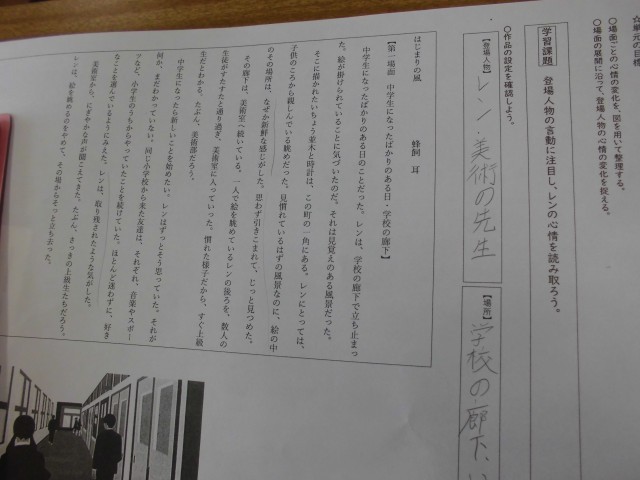 ☆単元の目標
○場面ごとの心情の変化を、図を用いて整理する。
○場面の展開に沿って、登場人物の心情の変化を捉える。
学習課題　登場人物の言動に注目し、レンの心情を読み取ろう。
○作品の設定を確認しよう。
【登場人物】
レン・美術の先生
【場所】
学校の廊下、
はじまりの風　蜂飼　耳
【第一場面　中学生になったばかりのある日・学校の廊下】
中学生になったばかりのある日のことだった。レンは、学校の廊下で立ち止まっ
た。絵が掛けられていることに気づいたのだ。それは見覚えのある風景だった。
そこに描かれたいちょう並木と時計は、この町の一角にある。レンにとっては、
子供のころから親しんでいる眺めだった。見慣れているはずの風景なのに、絵の中
のその場所は、なぜか新鮮な感じがした。思わず引きこまれて、じっと見つめた。
その廊下は、美術室へ続いている。一人で絵を眺めているレンの後ろを、数人の
生徒がすたすたと通り過ぎ、美術室に入っていった。慣れた様子だから、すぐ上級
生だとわかる。たぶん、美術部だろう。
中学生になったら新しいことを始めたい。レンはずっとそう思っていた。それが
何か、まだわかっていない。同じ小学校から来た友達は、それぞれ、音楽やスポー
ツなど、小学生のうちからやっていたことを続けていた。ほとんど迷わずに、好き
なことを選んでいるようにみえた。レンは、取り残されたような気がした。
美術室から、にぎやかな声が聞こえてきた。たぶん、さっきの上級生たちだろう。
レンは、絵を眺めるのをやめて、その場からそっと立ち去った。